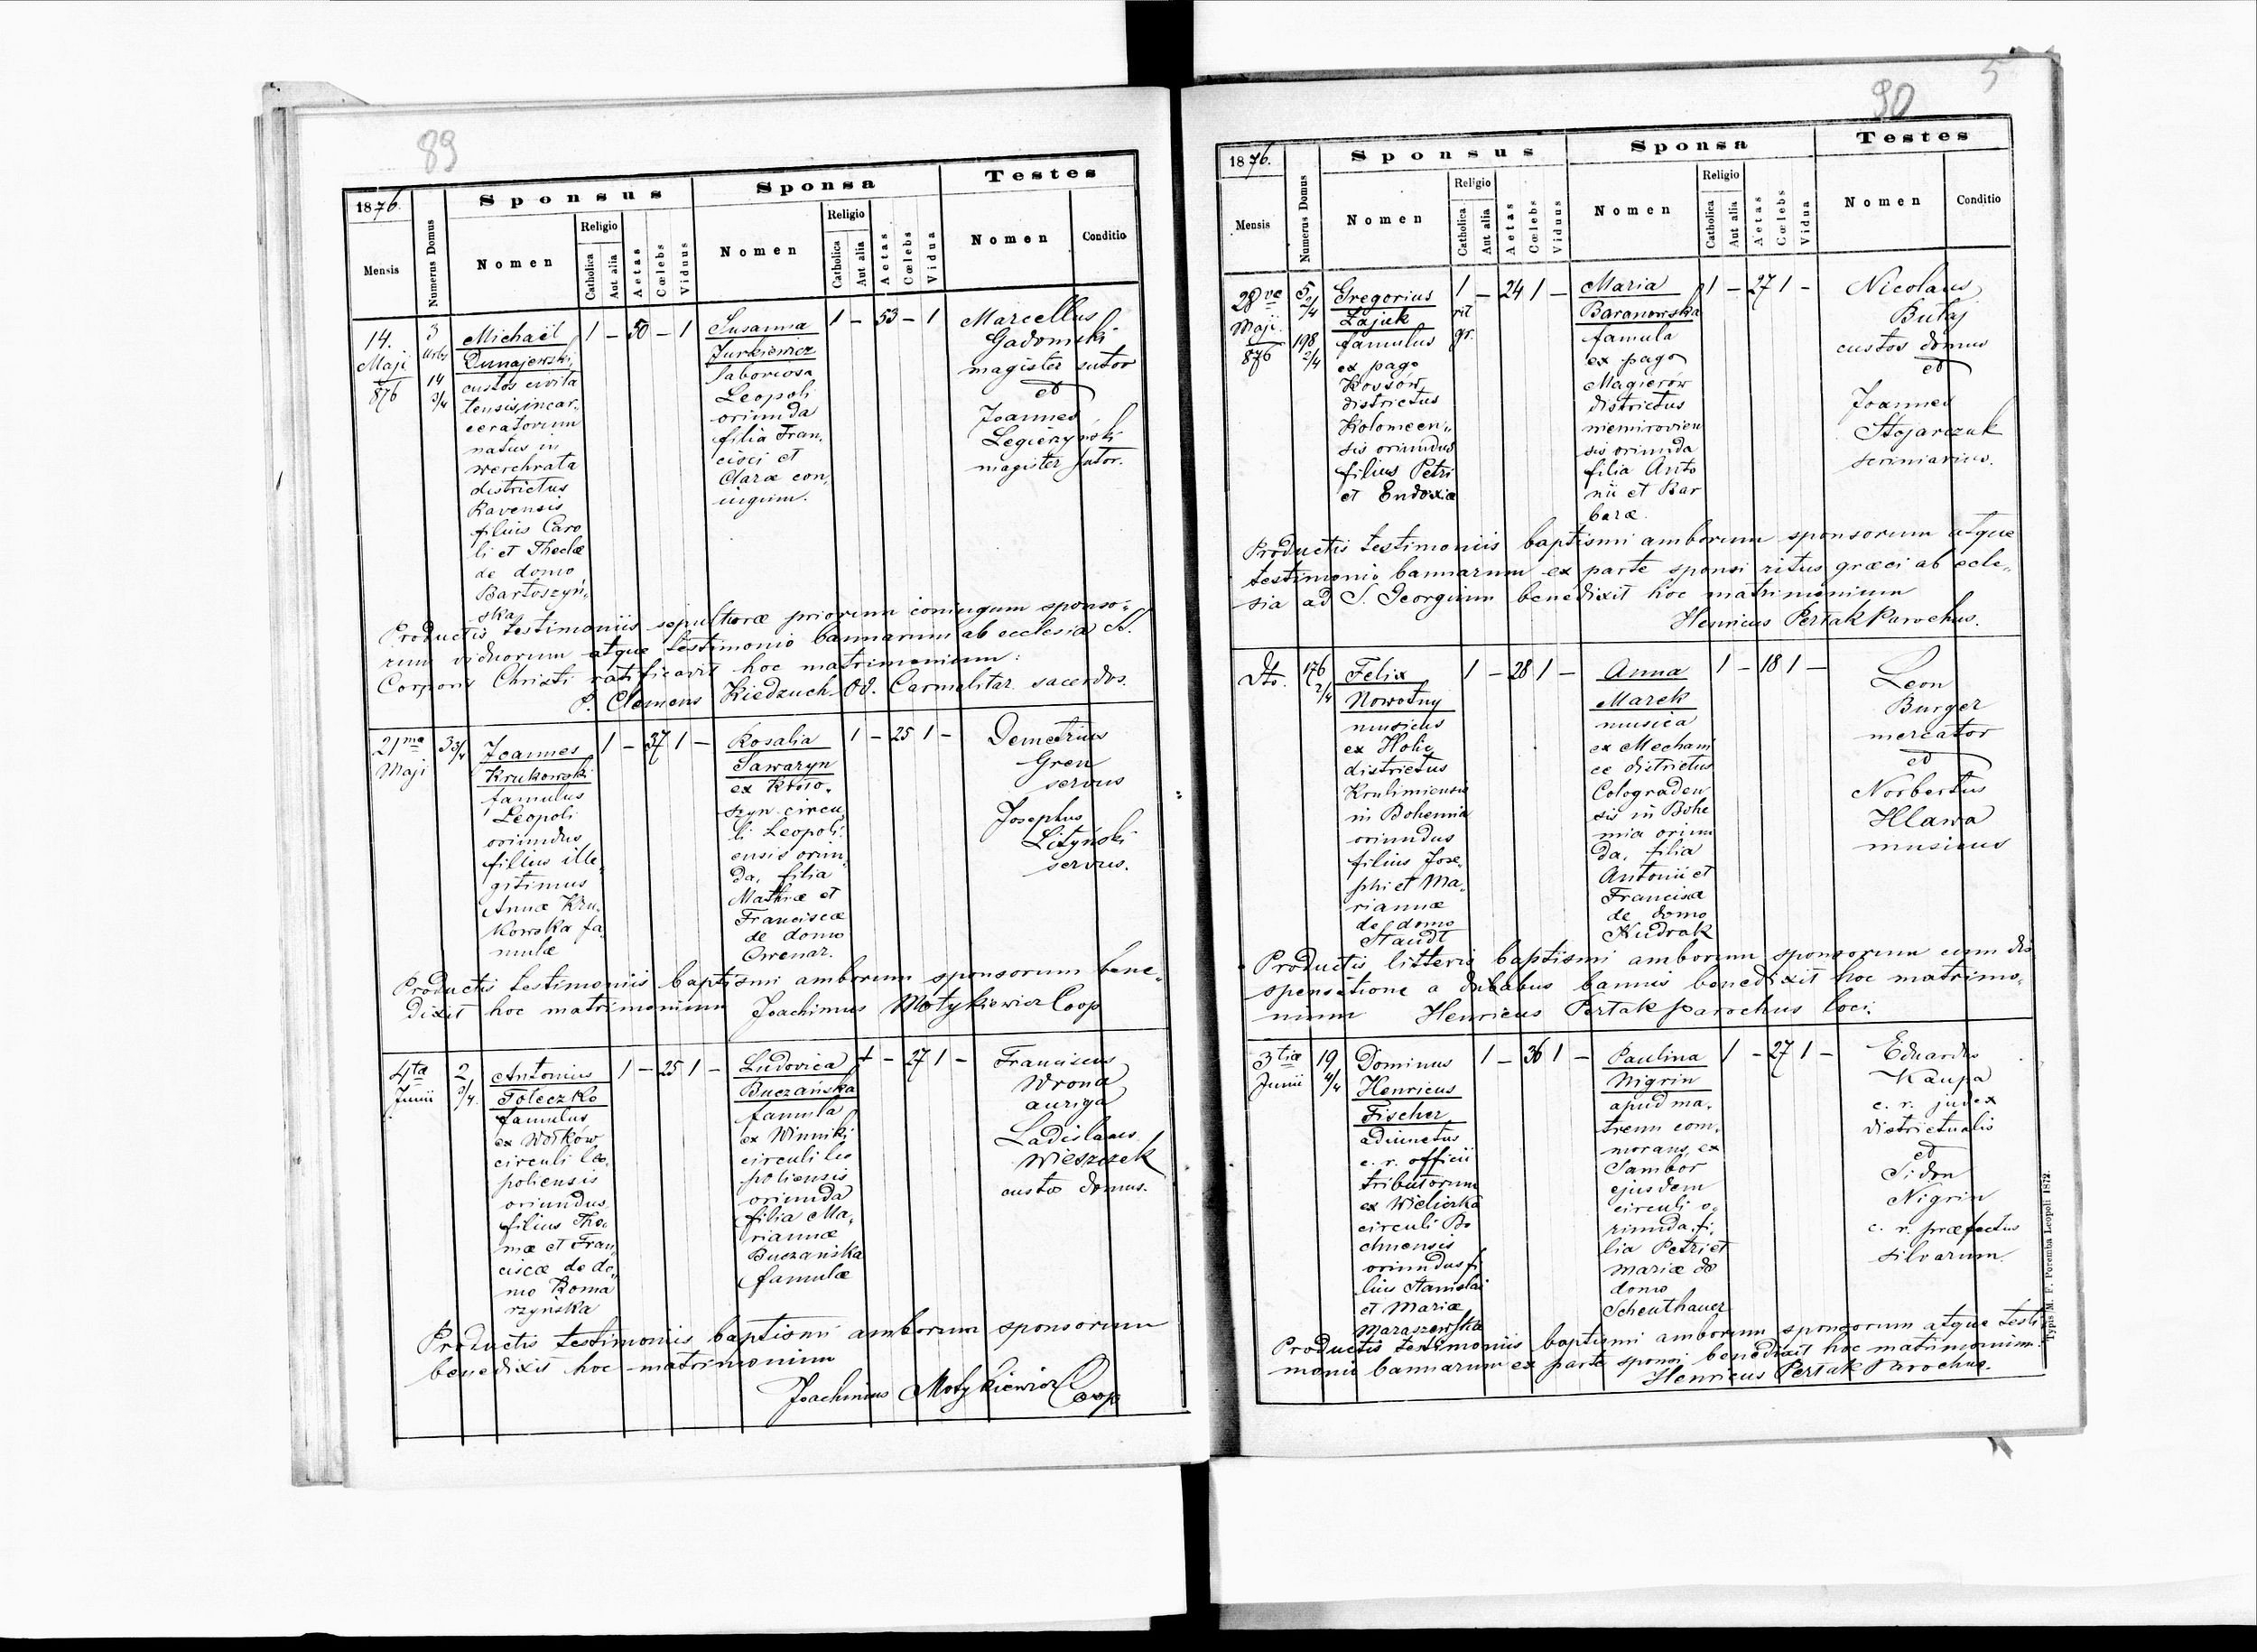 89
1876.
Sponsus
Sponsa
Testes
Mensis
Numerus Domus
Nomen
Religio
Catholica
Aut alia
Aetas
Cœlebs
Viduus
Nomen
Religio
Catholica
Aut alia
Aetas
Cœlebs
Vidua
Nomen
Conditio
14.
Maji
876
3
Urbs
14
3/4
Michaël
Dunajewski
custos civita
tensis, incar„
ceratorum
natus in
Werchrata
districtus
Ravensis
filius Caro
li et Theclæ
de domo
Bartoszyń„
ska
1 – 50 – 1
Susanna
Jurkiewicz
laboriosa
Leopoli
oriunda
filia Fran„
cisci et
Claræ con„
iugum.
1 – 53 – 1
Marcellus
Gadomski
magister sutor
et
Joannes
Legieżyński
magister sutor.
Productis testimoniis sepulturæ priorum coniugum sponso„
rum viduorum atque testimonio bannarum ab ecclesia SS.
Corporis Christi ratificavit hoc matrimonium:
P. Clemens Kiedzuch Od. Carmelitar. sacerdos.
21ma
Maji
3 3/4
Joannes
Krukowski
famulus
Leopoli
oriundus
filius ille„
gitimus
Annæ Kru„
kowska fa„
mulæ
1 – 37 1 –
Rosalia
Sawaryn
ex Kroto„
szyn circu
li Leopoli„
ensis oriun„
da, filia
Mathiæ et
Franciscæ
de domo
Owenar.
1 – 25 1 –
Demetrius
Gren
servus
Josephus
Lityński
servus.
Productis testimoniis baptismi amborum sponsorum bene„
dixit hoc matrimonium Joachimus Motykiewicz Coop
4ta
Junii
2
3/4.
Antonius
Toleczko
famulus
ex Wołków
circuli Leo„
poliensis
oriundus
filius Tho„
mæ et Fran„
ciscæ de do„
mo Roma
rzyńska
1 – 25 1 –
Ludovica
Buczańska
famula
ex Winniki
circuli Leo
poliensis
oriunda
filia Ma„
riannæ
Buczańska
famulæ
1 – 27 1 –
Franciscus
Wrona
auriga
Ladislaus
Wieszczek
custos domus.
Productis testimoniis baptismi amborum sponsorum
benedixit hoc matrimonium
Joachimus Motykiewicz Coop
90
5
1876.
Sponsus
Sponsa
Testes
Mensis
Numerus Domus
Nomen
Religio
Catholica
Aut alia
Aetas
Cœlebs
Viduus
Nomen
Religio
Catholica
Aut alia
Aetas
Cœlebs
Vidua
Nomen
Conditio
28va
Maji
876
5
2/4
198
2/4
Gregorius
Zajuk
famulus
ex pago
Kossów
districtus
Kolomeen„
sis oriundus
filius Petri
et Eudoxiæ
1 – 24 1 –
rit
gr.
Maria
Baranowska
famula
ex pago
Magierów
districtus
niemirovien
sis oriunda
filia Anto
nii et Bar
baræ.
1 – 27 1 –
Nicolaus
Butaj
custos domus
et
Joannes
Stojarczuk
scriniarius.
Productis testimoniis baptismi amborum sponsorum atque
testimonio bannarum ex parte sponsi ritus græci ab eccle„
sia ad S. Georgium benedixit hoc matrimonium
Henricus Pertak Parochus.
Dto.
176
2/4
Felix
Nowotny
musicus
ex Holic
districtus
Krulimiensis
in Bohemia
oriundus
filius Jose„
phi et Ma„
riannæ
de domo
Staudt
1 – 28 1 –
Anna
Marek
musica
ex Mechani
ce districtus
Cologradens
sis in Bohe
mia oriun
da, filia
Antonii et
Franciscæ
de domo
Kudrak
1 – 18 1 –
Leon
Burger
mercator
et
Norbertus
Hlawa
musicus
Productis litteris baptismi amborum sponsorum cum dis
spensatione a duabus bannis benedixit hoc matrimo„
nium Henricus Pertak parochus loci.
3tia
Junii
19
4/4
Dominus
Henricus
Fischer
adiunctus
c. r. officii
tributorum
ex Wieliczka
circuli Bo
chnensis
oriundus fi
lius Stanislai
et Mariæ
Maraszewska
1 – 36 1 –
Paulina
Nigrin
apud ma„
trem com„
morans, ex
Sambor
ejusdem
circuli o„
riunda, fi„
lia Petri et
Mariæ de
domo
Scheuthauer
1 – 27 1 –
Eduardus
Kaupa
c. r. judex
districtualis
et
Sidon
Nigrin
c. r. præfectus
silvarum.
Productis testimoniis baptismi amborum sponsorum atque testi
monii bannarum ex parte sponsi benedixit hoc matrimonium.
Henricus Pertak Parochus.
Typis M. F. Poremba Leopoli 1872.